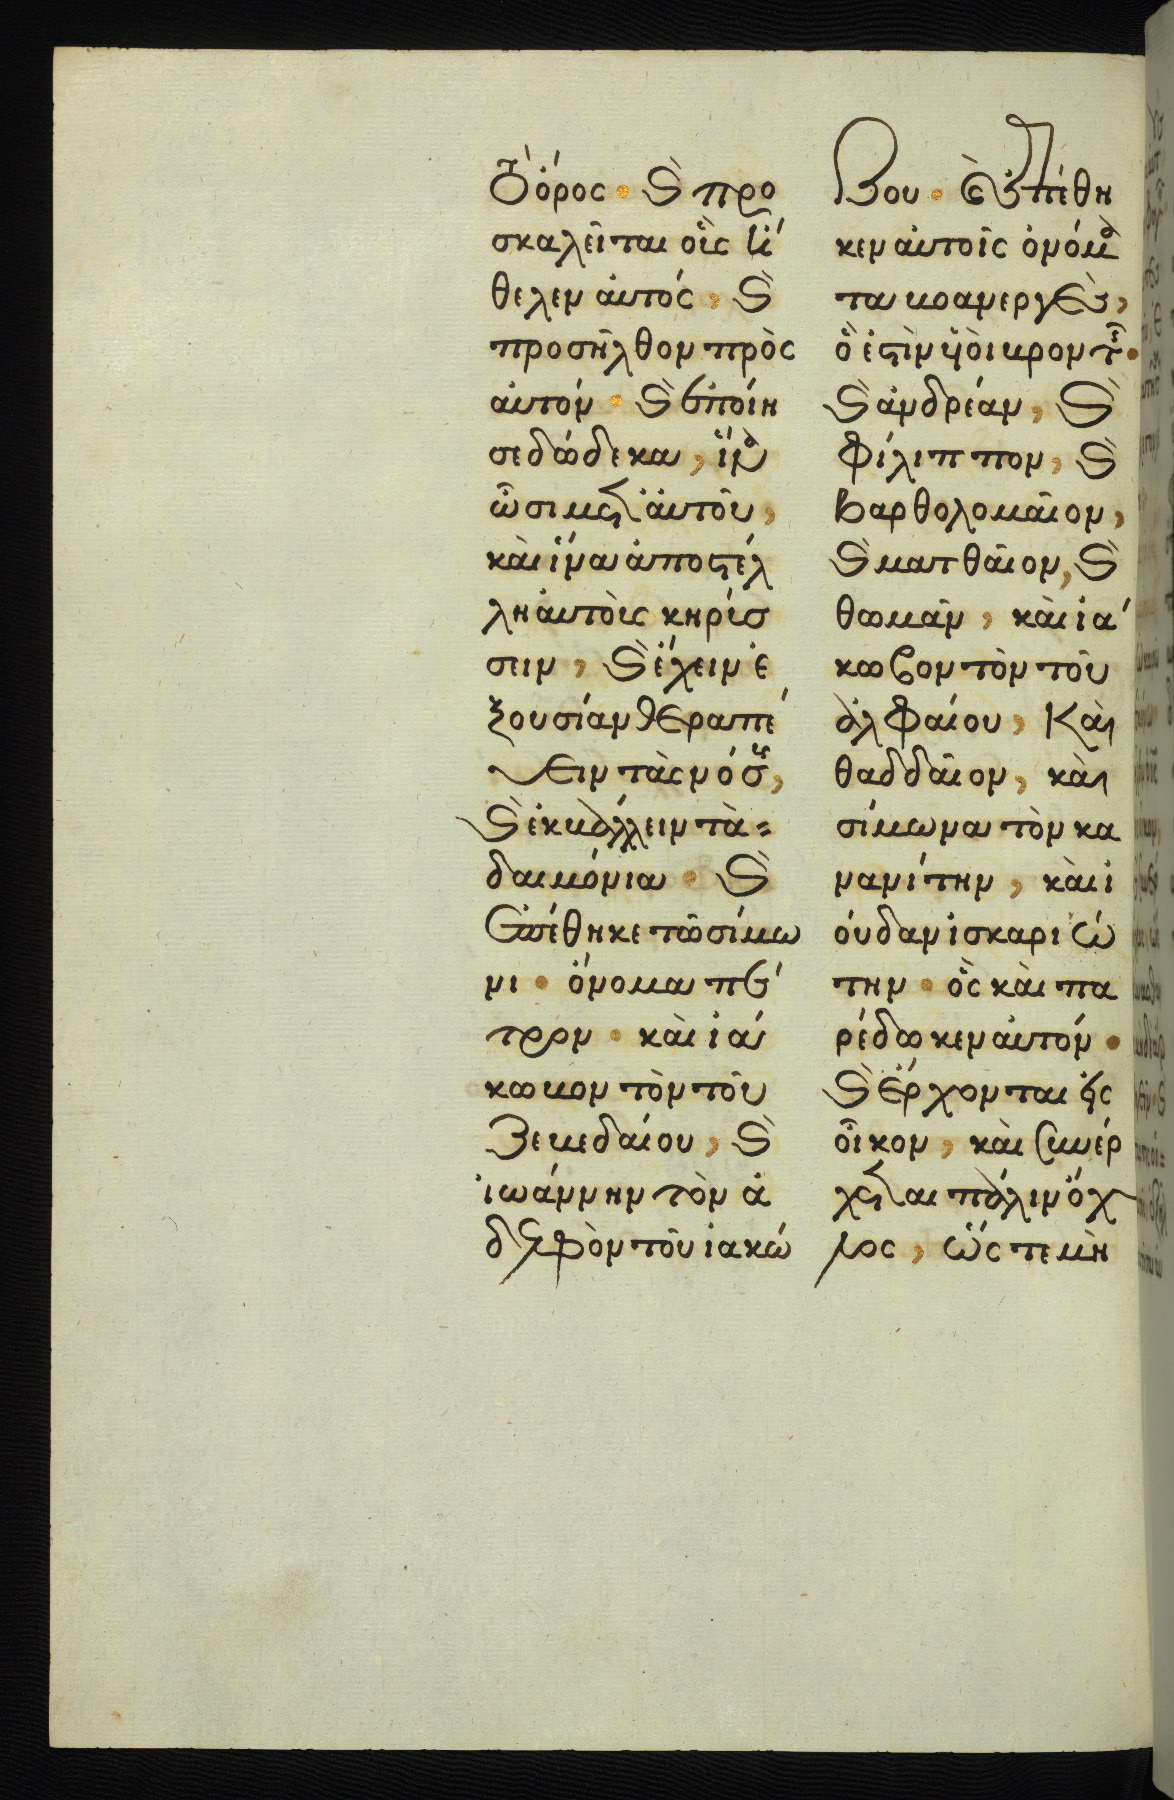 τὸ ὄρος· καὶ προ
σκαλεῖται οὓς ἤ
θελεν αὐτός, καὶ
προσῆλθον πρὸς
αὐτόν· καὶ ἐποίη
σε δώδεκα, ἵνα
ὦσι μετ' αὐτοῦ,
καὶ ἵνα ἀποστέλ
λη αὐτοὺς κηρύσ
σειν, καὶ ἔχειν ἐ
ξουσίαν θεραπέυ
ειν τὰς νόσους,
καὶ ἐκβάλλειν τὰ
δαιμόνια· καὶ
ἐπέθηκε τῶ σίμω
νι· ὄνομα πέ
τρον· καὶ ἰά
κωβον τὸν τοῦ
Ζεβεδαίου, καὶ
ἰωάννην τὸν ἀ
δελφὸν τοῦ ἰακώ
βου· καὶ ἐπέθη
κεν αὐτοῖς ὀνόμα
τα βοανεργὲς,
ὅ ἐστὶν υἱοὶ βροντῆς·
καὶ ἀνδρέαν, καὶ
Φίλιππον, καὶ
βαρθολομαῖον,
καὶ ματθαῖον, καὶ
θωμᾶν, καὶ ἰά
κωβον τὸν τοῦ
ἀλφαίου, Καὶ
θαδδαῖον, καὶ
σίμωνα τὸν κα
νανίτην, καὶ ἰ
ούδαν ἰσκαριώ
την· ὃς καὶ πα
ρέδωκεν αὐτόν·
καὶ ἔρχονται εἰς
οἶκον, καὶ συνέρ
χεται πάλιν ὄχ
λος, ὥς τε μὴ